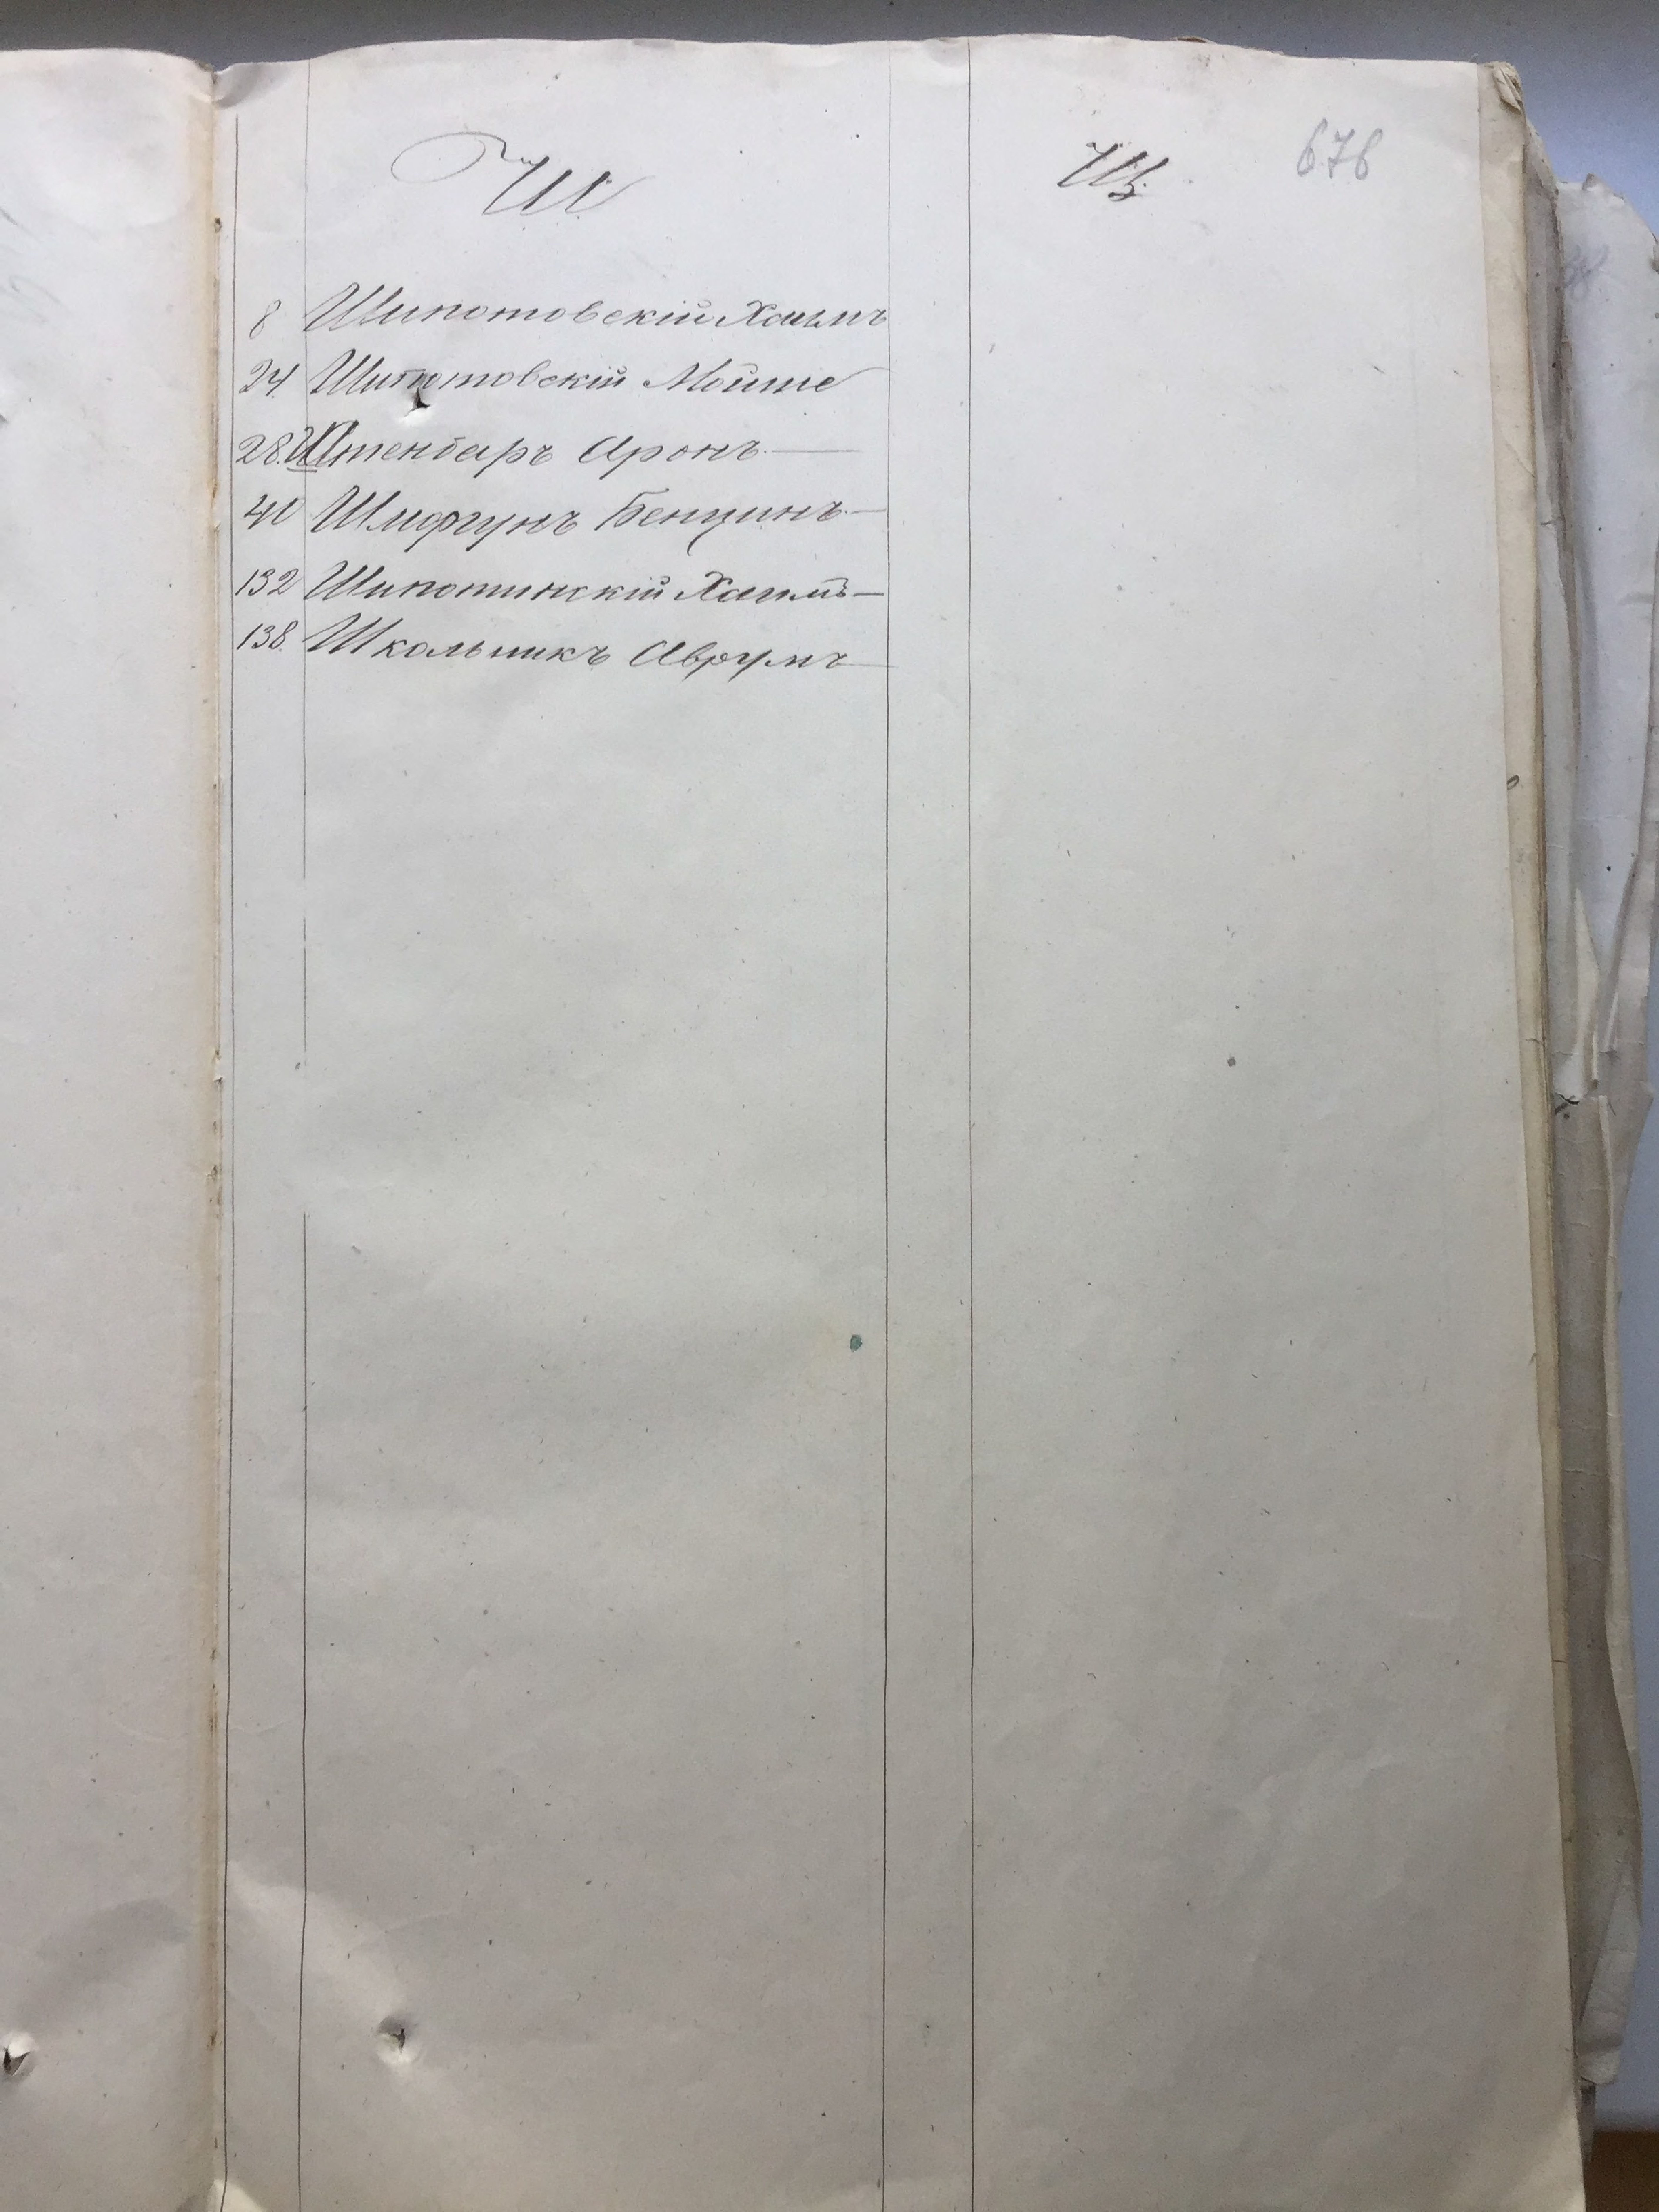 Ш
Щ
676
8 Шипотовскій Хаимъ
24 Шипотовскій Мойше
28. Штенбаръ Аронъ
40 Шмифунъ Бенцинъ
132 Шипотинскій Хаимъ
138. Школьникъ Аврумъ